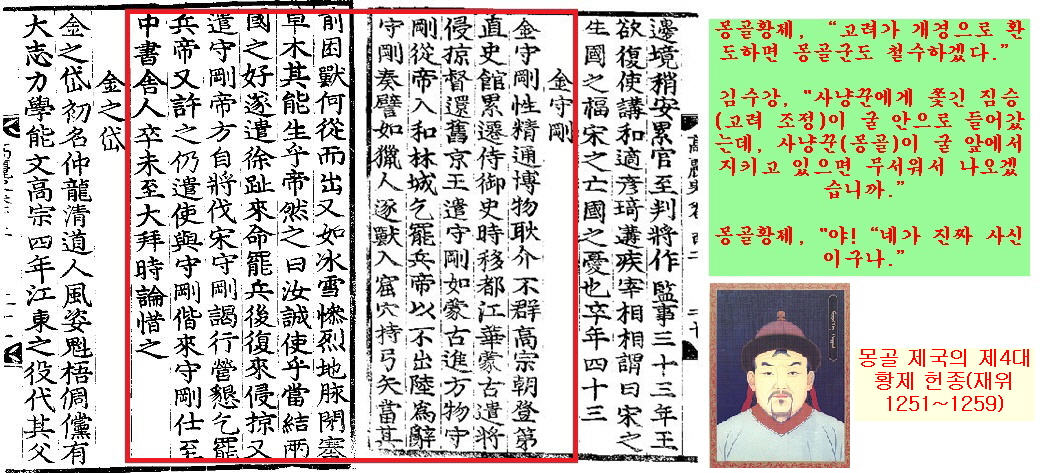 高麗史卷一百二 二十
邊境稍安累官至判將作監事三十三年王
欲復使講和適彦琦遘疾宰相相謂曰宋之
生國之福宋之亡國之憂也卒年四十三
金守剛
金守剛性精通博物耿介不群高宗朝登第
直史館累遷侍御史時移都江華蒙古遣將
侵掠督還舊京王遣守剛如蒙古進方物守
剛從帝入和林城乞罷兵帝以不出陸爲辭
守剛奏譬如獵人逐獸入窟穴持弓矢當其
前困獸何從而出又如冰雪慘烈地脉閉塞
草木其能生乎帝然之曰汝誠使乎當結兩
國之好遂遣徐趾來命罷兵後復來侵掠又
遣守剛帝方自將伐宋守剛謁行營懇乞罷
兵帝又許之仍遣使與守剛偕來守剛仕至
中書舍人卒未至大拜時論惜之
金之岱
金之岱初名仲龍清道人風姿魁梧倜儻有
大志力學能文高宗四年江東之役代其父
몽골황제, “고려가 개경으로 환
도하면 몽골군도 철수하겠다.”
김수강, "사냥꾼에게 쫓긴 짐승
(고려 조정)이 굴 안으로 들어갔
는데, 사냥꾼(몽골)이 굴 앞에서
지키고 있으면 무서워서 나오겠
습니까.”
몽골황제, "야! “네가 진짜 사신
이구나.”
몽골 제국의 제4대
황제 헌종(재위
1251~1259)